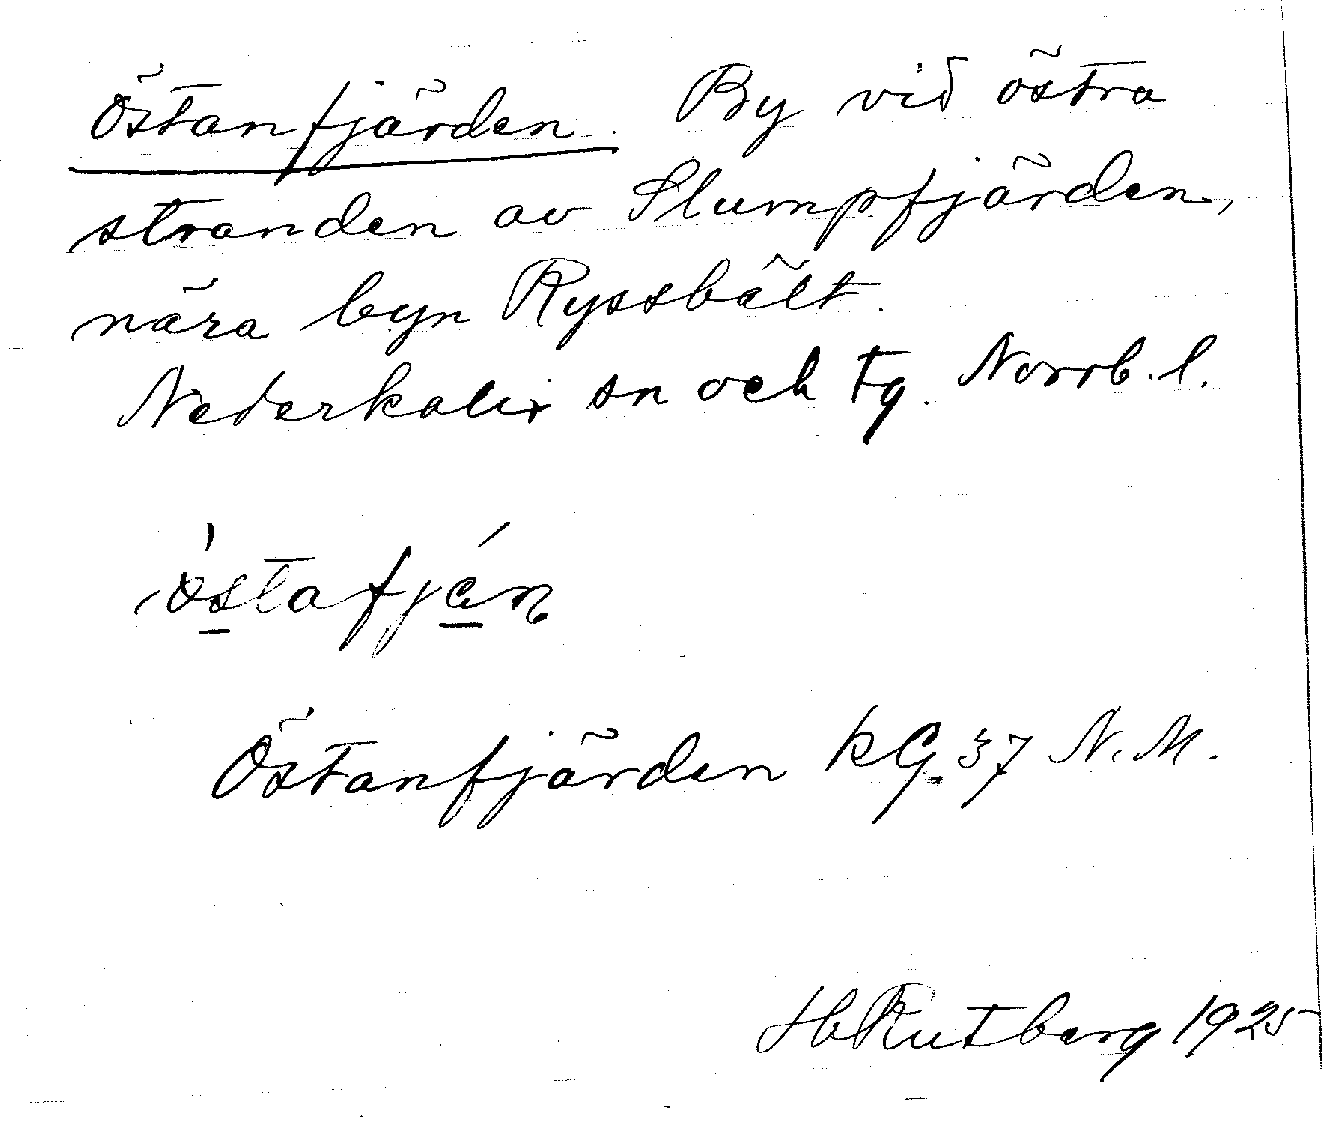 Östanfjärden. By vid östra
stranden av Slumpfjärden,
nära byn Ryssbält.
Nederkalix sn och tg. Norrb. l.
östafján
Östanfjärden kG. 37 N. M.
H Rutberg 1925